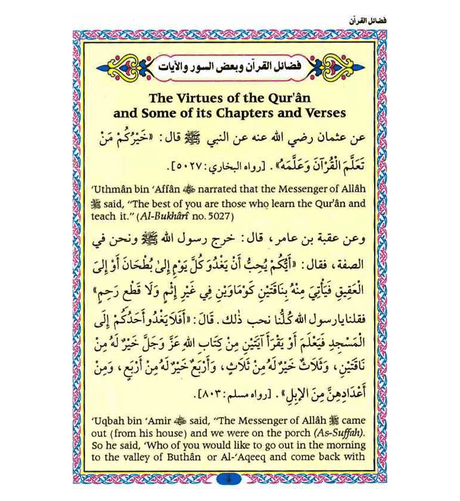 فضائل القرآن
فضائل القرآن وبعض السور والآيات
The Virtues of the Qur'ân
and Some of its Chapters and Verses
عن عثمان رضي الله عنه عن النبي ﷺ قال: «خَيْرُكُمْ مَنْ
تَعَلَّمَ الْقُرْآنَ وَعَلَّمَهُ». [رواه البخاري: ٥٠٢٧].
'Uthmân bin 'Affân narrated that the Messenger of Allâh
ﷺ said, "The best of you are those who learn the Qur'ân and
teach it." (Al-Bukhârî no. 5027)
وعن عقبة بن عامر، قال: خرج رسول الله ﷺ ونحن في
الصفة، فقال: «أَيُّكُمْ يُحِبُّ أَنْ يَغْدُوَ كُلَّ يَوْمٍ إِلَى بُطْحَانَ أَوْ إِلَى
الْعَقِيقِ فَيَأْتِيَ مِنْهُ بِنَاقَتَيْنِ كَوْمَاوَيْنِ فِي غَيْرِ إِثْمٍ وَلَا قَطْعِ رَحِمٍ»
فقلنا يا رسول الله كُلُّنَا نحب ذلك. قَالَ: «أَفَلَا يَغْدُو أَحَدُكُمْ إِلَى
الْمَسْجِدِ فَيَعْلَمَ أَوْ يَقْرَأَ آيَتَيْنِ مِنْ كِتَابِ اللهِ عَزَّ وَجَلَّ خَيْرٌ لَهُ مِنْ
نَاقَتَيْنِ، وَثَلَاثٌ خَيْرٌ لَهُ مِنْ ثَلَاثٍ، وَأَرْبَعٌ خَيْرٌ لَهُ مِنْ أَرْبَعٍ، وَمِنْ
أَعْدَادِهِنَّ مِنَ الْإِبِلِ». [رواه مسلم: ٨٠٣].
'Uqbah bin 'Amir said, "The Messenger of Allâh ﷺ came
out (from his house) and we were on the porch (As-Suffah).
So he said, 'Who of you would like to go out in the morning
to the valley of Buthân or Al-'Aqeeq and come back with